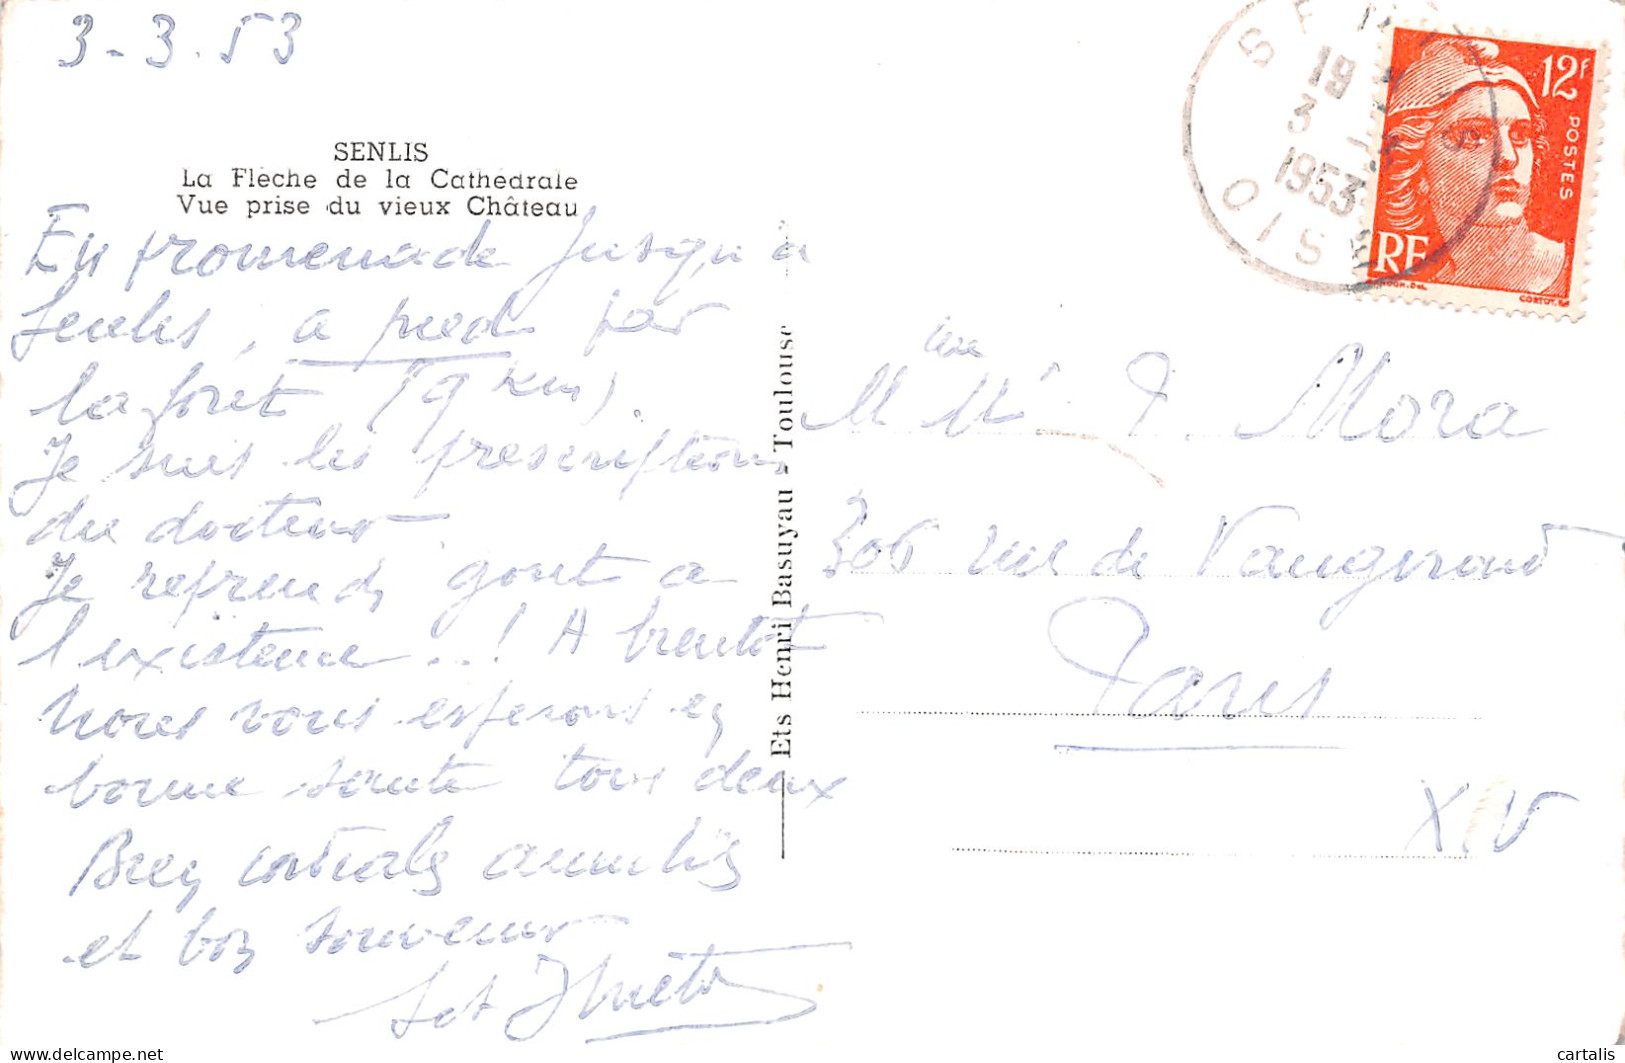 3-3.53
SENLIS
La Flèche de la Cathédrale
Vue prise du vieux Château
En promenade jusqu'à
Senlis, a pied par
la foret (9 km).
Je suis les prescriptions
du docteur
Je reprends gout a
l'existence...! A bientot
Nous vous esperons en
bonne sante tous deux
Bien cordiales amitiés
et bon souvenir
Ets Henri Basuyau - Toulouse
SENLIS
19
3 - 3
1953
OISE
12F
POSTES
RF
CORTOT
Mora
306 rue de Vaugirard
Paris
XV
cartalis